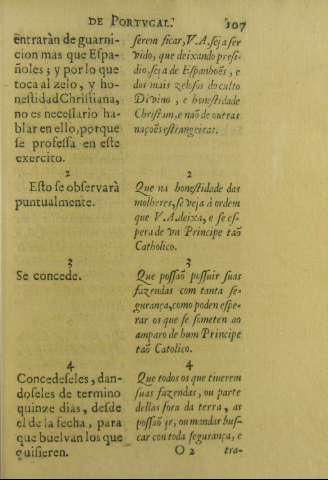 DE PORTVGAL. 107
entraràn de guarni-
cion mas que Espa-
ñoles; y por lo que
toca al zelo, y ho-
nestidad Christiana,
no es necessario ha-
blar en ello, porque
se professa en este
exercito.
2
Esto se observarà
puntualmente.
3
Se concede.
4
Concedeseles, dan-
doseles de termino
quinze dias, desde
el de la fecha, para
que buelvan los que
quisieren.
serem ficar, V.A. seja ser
vido, que deixando presi-
dio, seja de Espanhoes, e
dos mais zelosos do culto
Divino, e honestidade
Christam, e naõ de outras
naçoẽs estrangeiras.
2
Que na honestidade das
molheres, se veja à ordem
que V.A. deixa, e se es-
pera de vn Principe taõ
Catholico.
3
Que possaõ possuir suas
fazendas com tanta se-
gurança, como poden espe-
rar os que se someten ao
amparo de hum Principe
taõ Catolico.
4
Que todos os que tiverem
suas fazendas, ou parte
dellas fora da terra, as
possaõ ir, ou mandar bus-
car con toda segurança, e
O 2 tra-